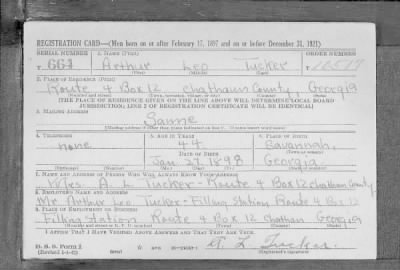 REGISTRATION CARD—(Men born on or after February 17, 1897 and on or before December 31, 1921)
SERIAL NUMBER 1. NAME (Print) ORDER NUMBER
T 661 Arthur Leo Tucker T 10517
(First) (Middle) (Last)
2. PLACE OF RESIDENCE (Print)
Route 4 Box 12 Chatham County, Georgia
(Number and street) (Town, township, village, or city) (County) (State)
[THE PLACE OF RESIDENCE GIVEN ON THE LINE ABOVE WILL DETERMINE LOCAL BOARD
JURISDICTION; LINE 2 OF REGISTRATION CERTIFICATE WILL BE IDENTICAL]
3. MAILING ADDRESS
Same
[Mailing address if other than place indicated on line 2. If same insert word same]
4. TELEPHONE 5. AGE IN YEARS 6. PLACE OF BIRTH
none 44 Savannah,
DATE OF BIRTH (Town or county)
Jan 27 1898 Georgia
(Exchange) (Number) (Mo.) (Day) (Yr.) (State or country)
7. NAME AND ADDRESS OF PERSON WHO WILL ALWAYS KNOW YOUR ADDRESS
Mrs. A. L. Tucker - Route 4 Box 12 Chatham County
8. EMPLOYER'S NAME AND ADDRESS
Mr. Arthur Leo Tucker - Filling Station Route 4 Box 12
9. PLACE OF EMPLOYMENT OR BUSINESS
Filling Station Route 4 Box 12 Chatham Georgia
(Number and street or R. F. D. number) (Town) (County) (State)
I AFFIRM THAT I HAVE VERIFIED ABOVE ANSWERS AND THAT THEY ARE TRUE.
D. S. S. Form 1
(Revised 1-1-42) (over) A. L. Tucker
(Registrant's signature)